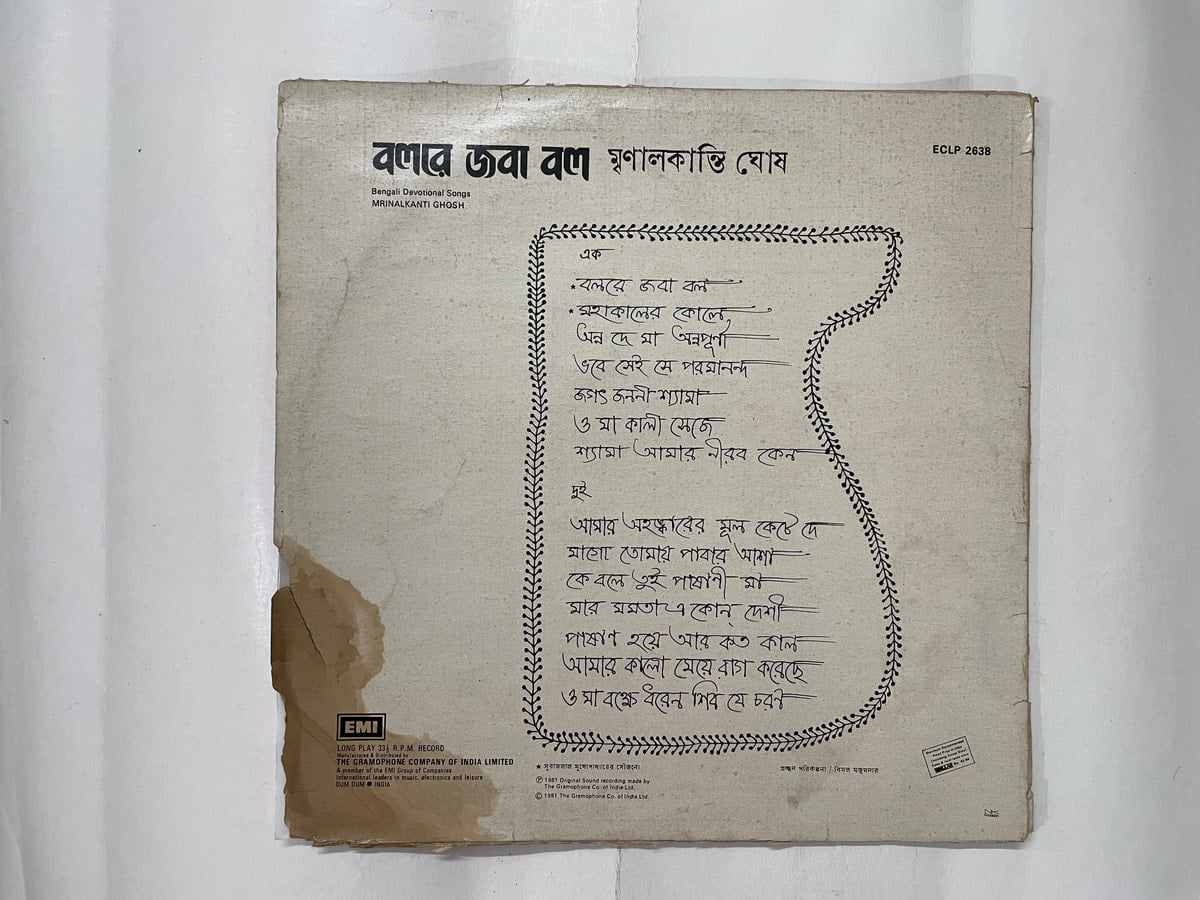 বলরে জবা বল মৃণালকান্তি ঘোষ
ECLP 2638
Bengali Devotional Songs
MRINALKANTI GHOSH
এক
★ বলরে জবা বল
★ মহাকালের কোলে
অন্ন দে মা অন্নপূর্ণা
ভবে সেই সে পরমানন্দ
জগৎ জননী শ্যামা
ও মা কালী সেজে
শ্যামা আমার নীরব কেন
দুই
আমার অহঙ্কারের মূল কেটে দে
মাগো তোমায় পাবার আশা
কে বলে তুই পাষাণী মা
মার মমতা এ কোন্ দেশী
পাষাণ হয়ে আর কত কাল
আমার কালো মেয়ে রাগ করেছে
ও মা বক্ষে ধরেন শিব যে চরণ
EMI
LONG PLAY 33⅓ R.P.M. RECORD
Manufactured & Distributed by
THE GRAMOPHONE COMPANY OF INDIA LIMITED
A member of the EMI Group of Companies
International leaders in music, electronics and leisure
DUM DUM INDIA
★ সুরাজলাল মুখোপাধ্যায়ের সৌজন্যে।
Ⓟ 1981 Original Sound recording made by
The Gramophone Co. of India Ltd.
© 1981 The Gramophone Co. of India Ltd.
প্রচ্ছদ পরিকল্পনা / বিমল মজুমদার